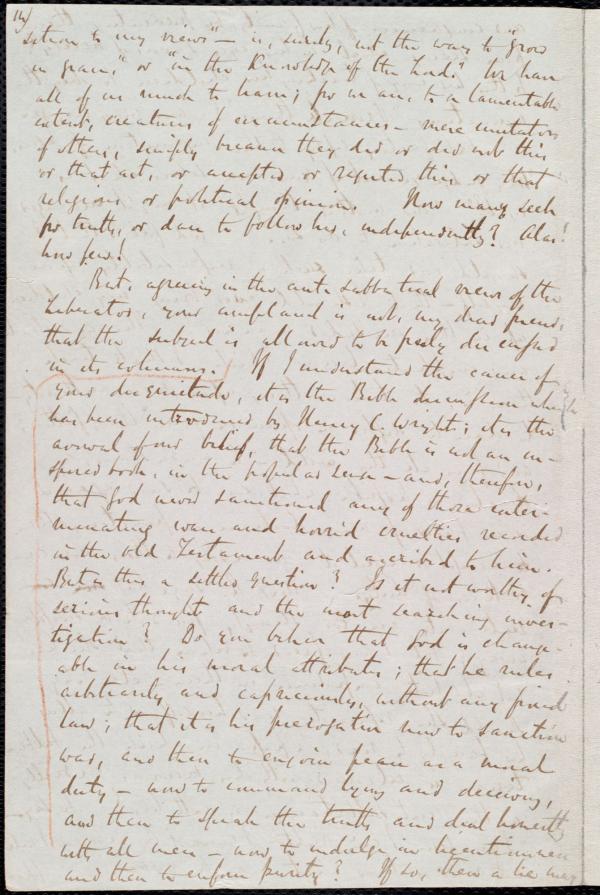 14)
sition to my views" — is, surely, not the way to "grow
in grace," or "in the knowledge of the Lord." We have
all of us much to learn; for we are, to a lamentable
extent, creatures of circumstances — mere imitators
of others, simply because they did or did not this
or that act, or accepted or rejected this or that
religious or political opinion. How many seek
for truth, or dare to follow her, independently? Alas!
how few!
But, agreeing in the anti-sabbatical views of the
Liberator, your complaint is not, my dear friend,
that the subject is allowed to be freely discussed
in its columns. If I understand the cause of
your disquietude, it is the Bible discussion which
has been introduced by Henry C. Wright; it is the
avowal of our belief, that the Bible is not an in-
spired book, in the popular sense — and, therefore,
that God never sanctioned any of those exter-
minating wars and horrid cruelties recorded
in the Old Testament and ascribed to him.
But is this a settled question? Is it not worthy of
serious thought and the most searching inves-
tigation? Do you believe that God is change-
able in his moral attributes; that he rules
arbitrarily and capriciously, without any fixed
law; that it is his prerogative now to sanction
war, and then to enjoin peace as a moral
duty — now to command lying and deceiving,
and then to speak the truth and deal honestly
with all men — now to indulge in licentiousness
and then to enforce purity? If so, then a lie may